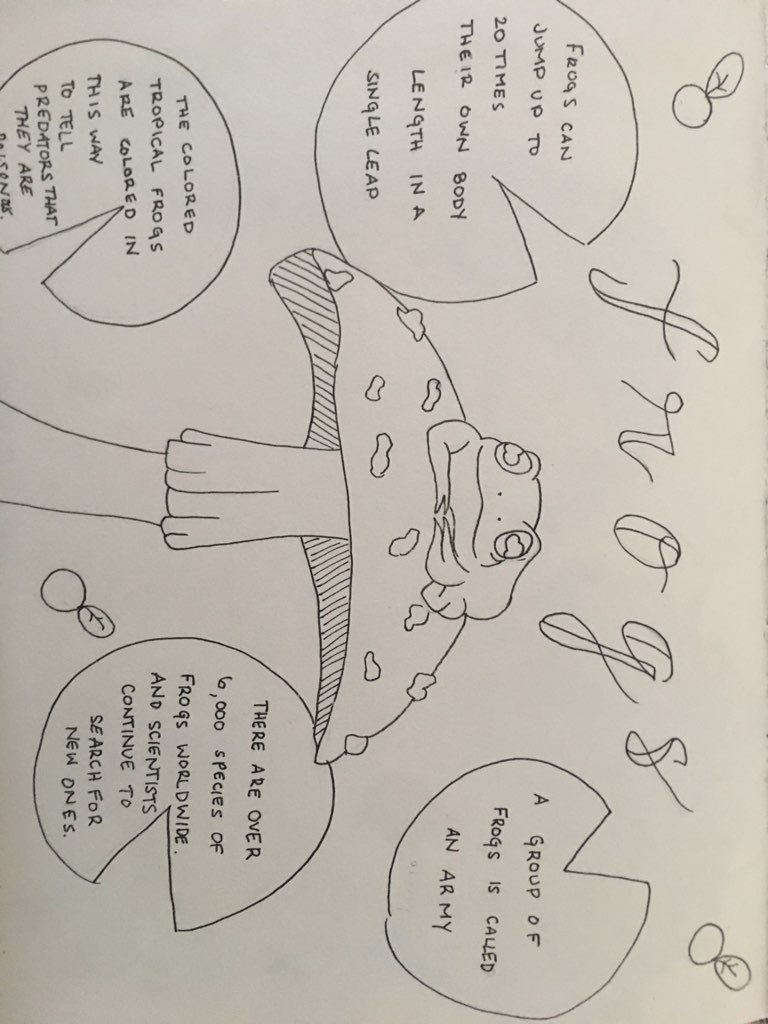 frogs
FROGS CAN
JUMP UP TO
20 TIMES
THEIR OWN BODY
LENGTH IN A
SINGLE LEAP
A GROUP OF
FROGS IS CALLED
AN ARMY
THE COLORED
TROPICAL FROGS
ARE COLORED IN
THIS WAY
TO TELL
PREDATORS THAT
THEY ARE
THERE ARE OVER
6,000 SPECIES OF
FROGS WORLDWIDE.
AND SCIENTISTS
CONTINUE TO
SEARCH FOR
NEW ONES.